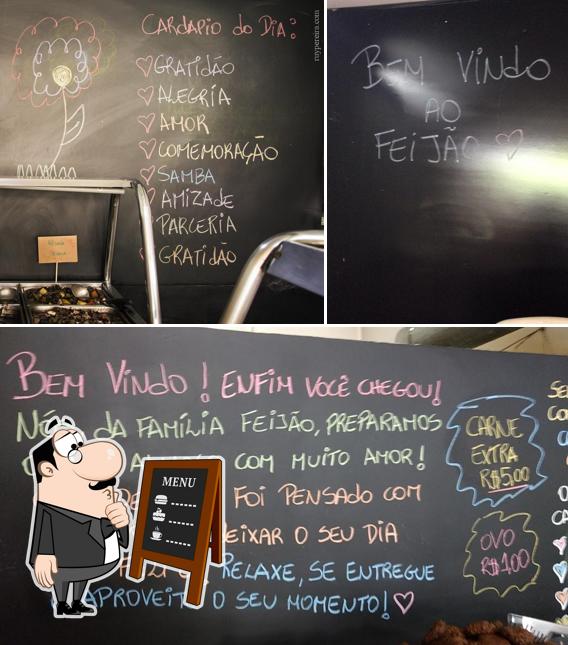 CARDAPIO DO DIA:
♡GRATIDÃO
♡ALEGRIA
♡AMOR
♡COMEMORAÇÃO
♡SAMBA
♡AMIZADE
PARCERIA
GRATIDÃO
roypereira.com
BEM VINDO
AO
FEIJÃO ♡
BEM VINDO! ENFIM VOCÊ CHEGOU!
DA FAMÍLIA FEIJÃO, PREPARAMOS
COM MUITO AMOR!
FOI PENSADO COM
O SEU DIA
RELAXE, SE ENTREGUE
O SEU MOMENTO!♡
CARNE
EXTRA
R$5,00
OVO
R$1,00
MENU